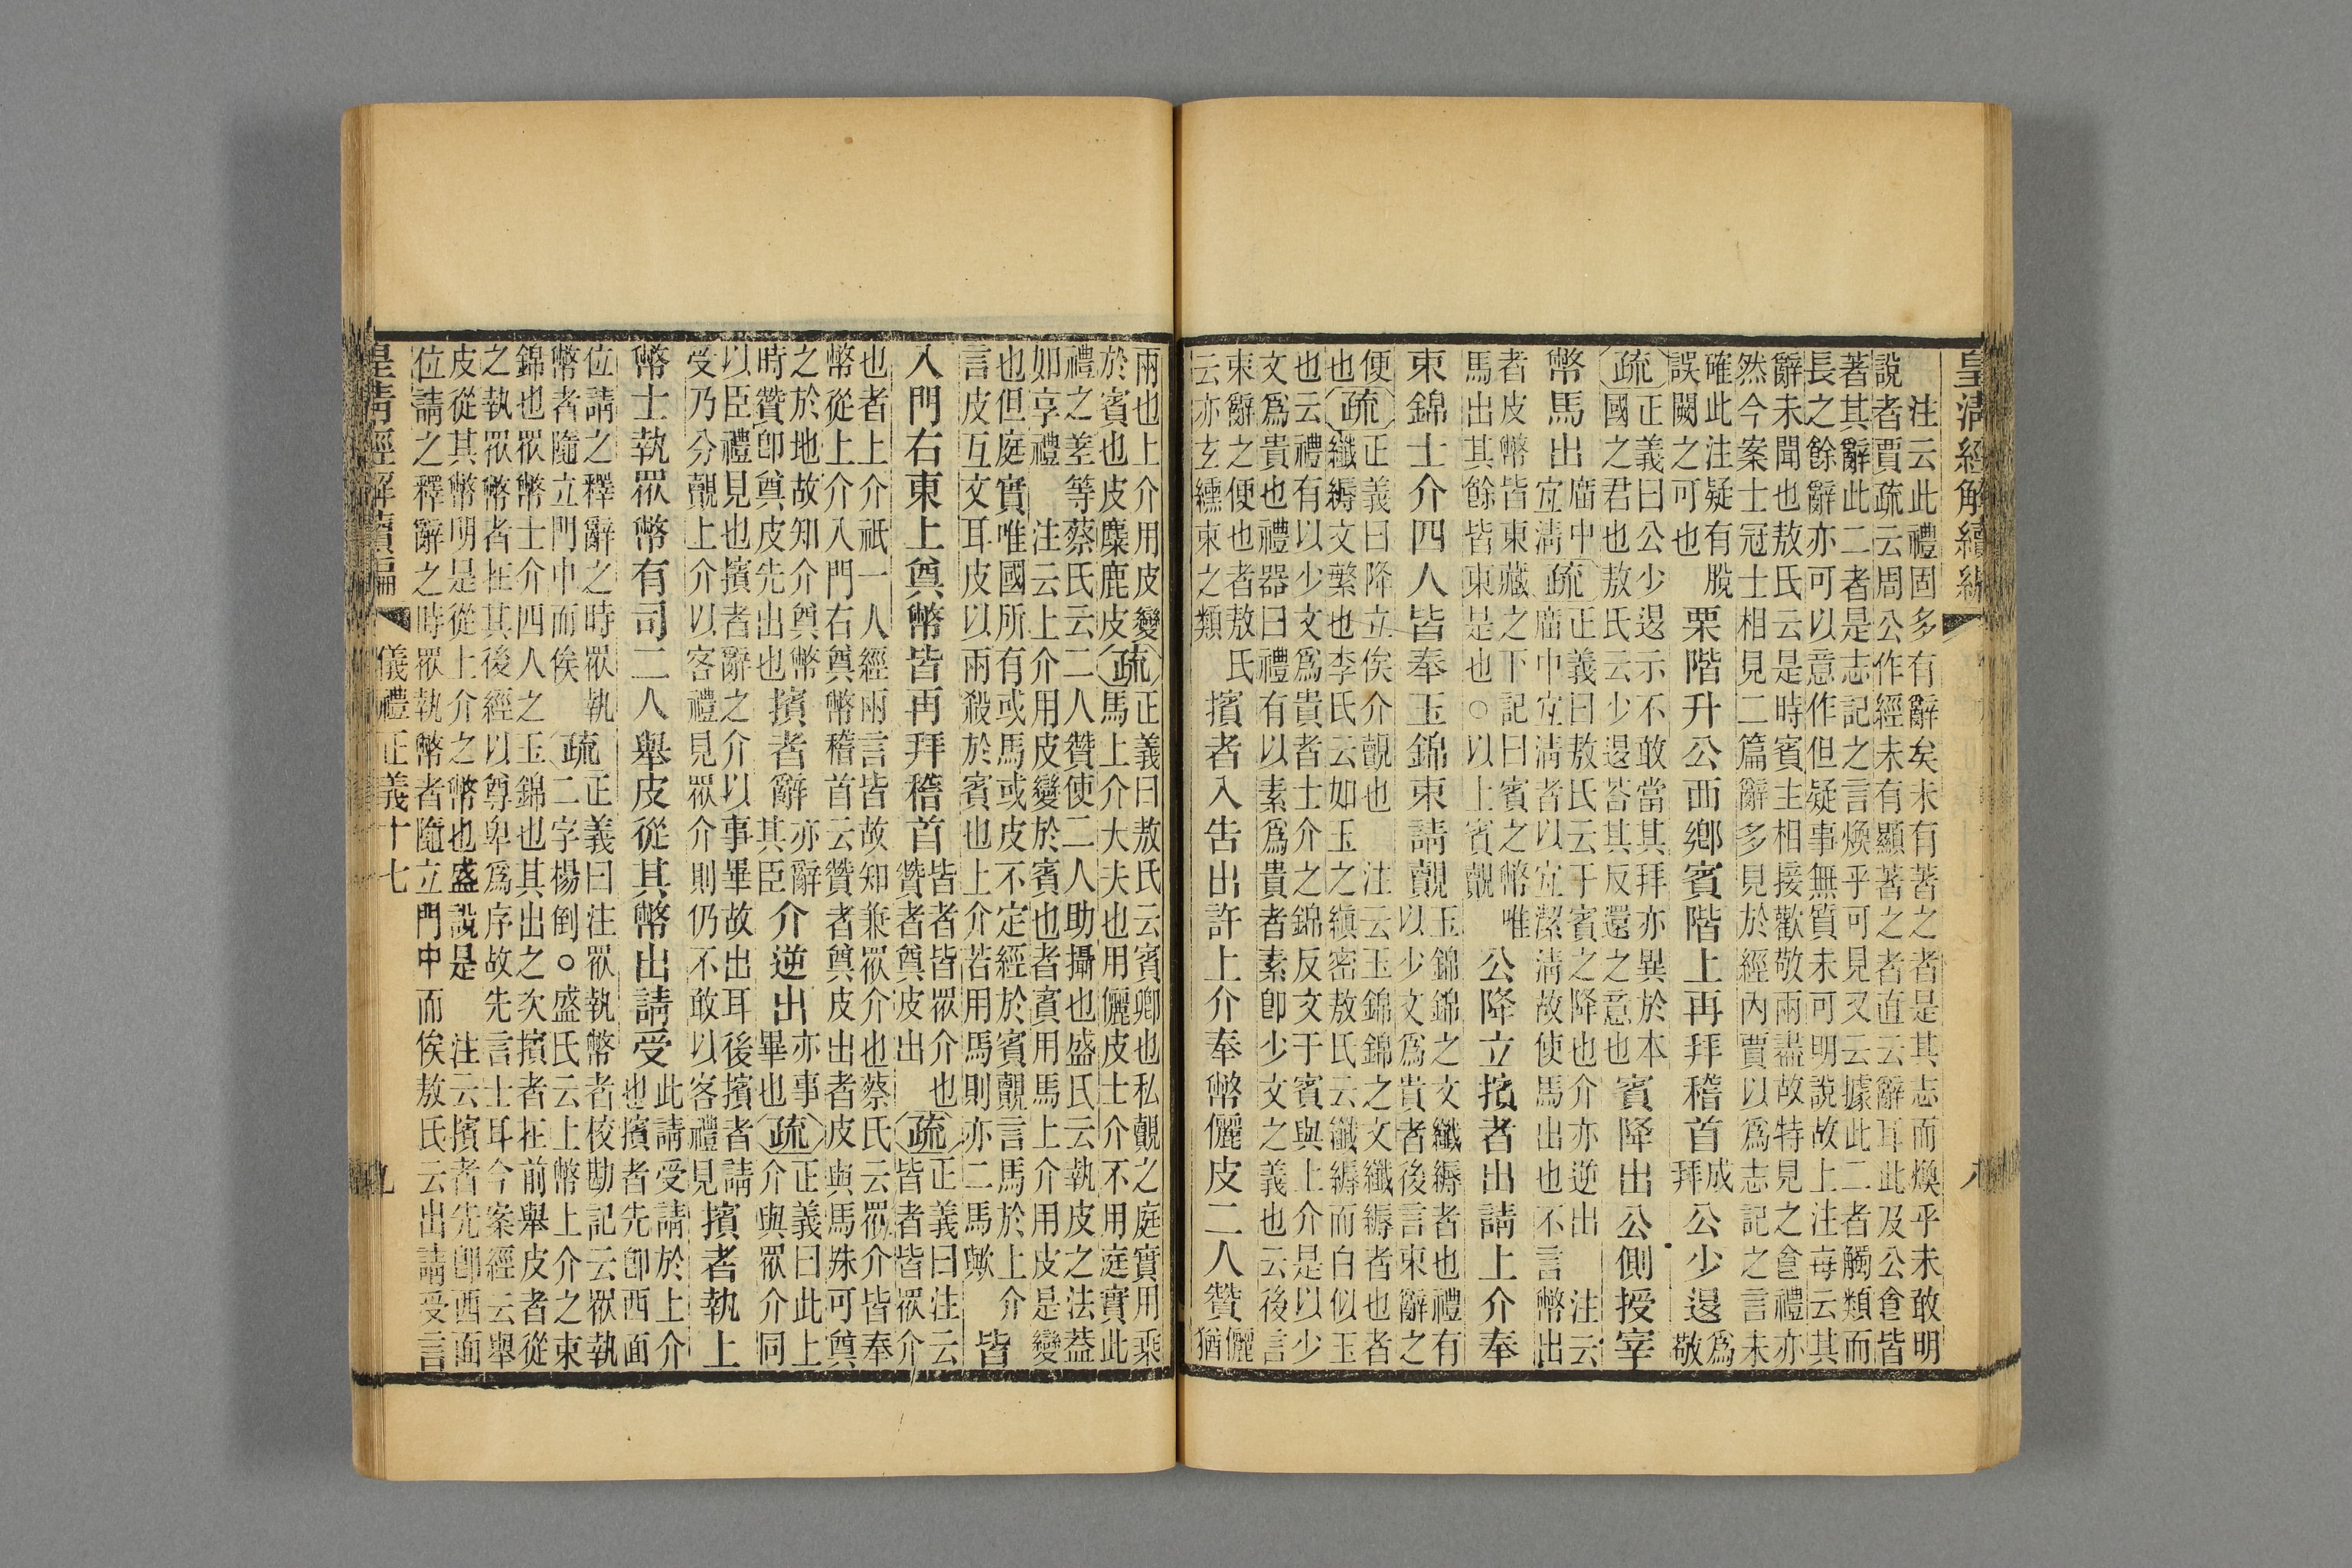 皇清經解續編
八
注云此禮固多有辭矣未有著之者是其志而煥乎未敢明
說者賈疏云周公作經未有顯著之者直云辭耳此及公食皆
著其辭此二者是志記之言煥乎可見又云據此二者觸類而
長之餘辭亦可以意作但疑事無質未可明說故上注每云其
辭未聞也敖氏云是時賓主相接歡敬兩盡故特見之食禮亦
然今案士冠士相見二篇辭多見於經內賈以爲志記之言未
確此注疑有脫
誤闕之可也
栗階升公西鄉賓階上再拜稽首
成
拜
公少退
爲
敬
疏
正義曰公少退示不敢當其拜亦異於本
國之君也敖氏云少退荅其反還之意也
賓降出公側授宰
幣馬出
廟中
宜清
疏
正義曰敖氏云于賓之降也介亦逆出 注云
廟中宜清者以宜潔清故使馬出也不言幣出
者皮幣皆東藏之下記曰賓之幣唯
馬出其餘皆東是也○以上賓覿
公降立擯者出請上介奉
束錦士介四人皆奉玉錦束請覿
玉錦錦之文纖縟者也禮有
以少文爲貴者後言束辭之
便
也
疏
正義曰降立俟介覿也 注云玉錦錦之文纖縟者也者
纖縟文繁也李氏云如玉之縝密敖氏云纖縟而白似玉
也云禮有以少文爲貴者士介之錦反文于賓與上介是以少
文爲貴也禮器曰禮有以素爲貴者素卽少文之義也云後言
束辭之便也者敖氏
云亦玄纁束之類
擯者入告出許上介奉幣儷皮二人贊
儷
猶
兩也上介用皮變
於賓也皮麋鹿皮
疏
正義曰敖氏云賓卿也私覿之庭實用乘
馬上介大夫也用儷皮士介不用庭實此
禮之差等蔡氏云二人贊使二人助攝也盛氏云執皮之法葢
如享禮 注云上介用皮變於賓也者賓用馬上介用皮是變
也但庭實唯國所有或馬或皮不定經於賓覿言馬於上介
言皮互文耳皮以兩殺於賓也上介若用馬則亦二馬歟
皆
入門右東上奠幣皆再拜稽首
皆者皆眾介也
贊者奠皮出
疏
正義曰注云
皆者皆眾介
也者上介祇一人經兩言皆故知兼眾介也蔡氏云眾介皆奉
幣從上介入門右奠幣稽首云贊者奠皮出者皮與馬殊可奠
之於地故知介奠幣
時贊卽奠皮先出也
擯者辭
亦辭
其臣
介逆出
亦事
畢也
疏
正義曰此上
介與眾介同
以臣禮見也擯者辭之介以事畢故出耳後擯者請
受乃分覿上介以客禮見眾介則仍不敢以客禮見
擯者執上
幣士執眾幣有司二人舉皮從其幣出請受
此請受請於上介
也擯者先卽西面
位請之釋辭之時眾執
幣者隨立門中而俟
疏
正義曰注眾執幣者校勘記云眾執
二字楊倒○盛氏云上幣上介之束
錦也眾幣士介四人之玉錦也其出之次擯者在前舉皮者從
之執眾幣者在其後經以尊卑爲序故先言士耳今案經云舉
皮從其幣明是從上介之幣也盛說是 注云擯者先卽西面
位請之釋辭之時眾執幣者隨立門中而俟敖氏云出請受言
皇清經解續編
儀禮正義十七
九